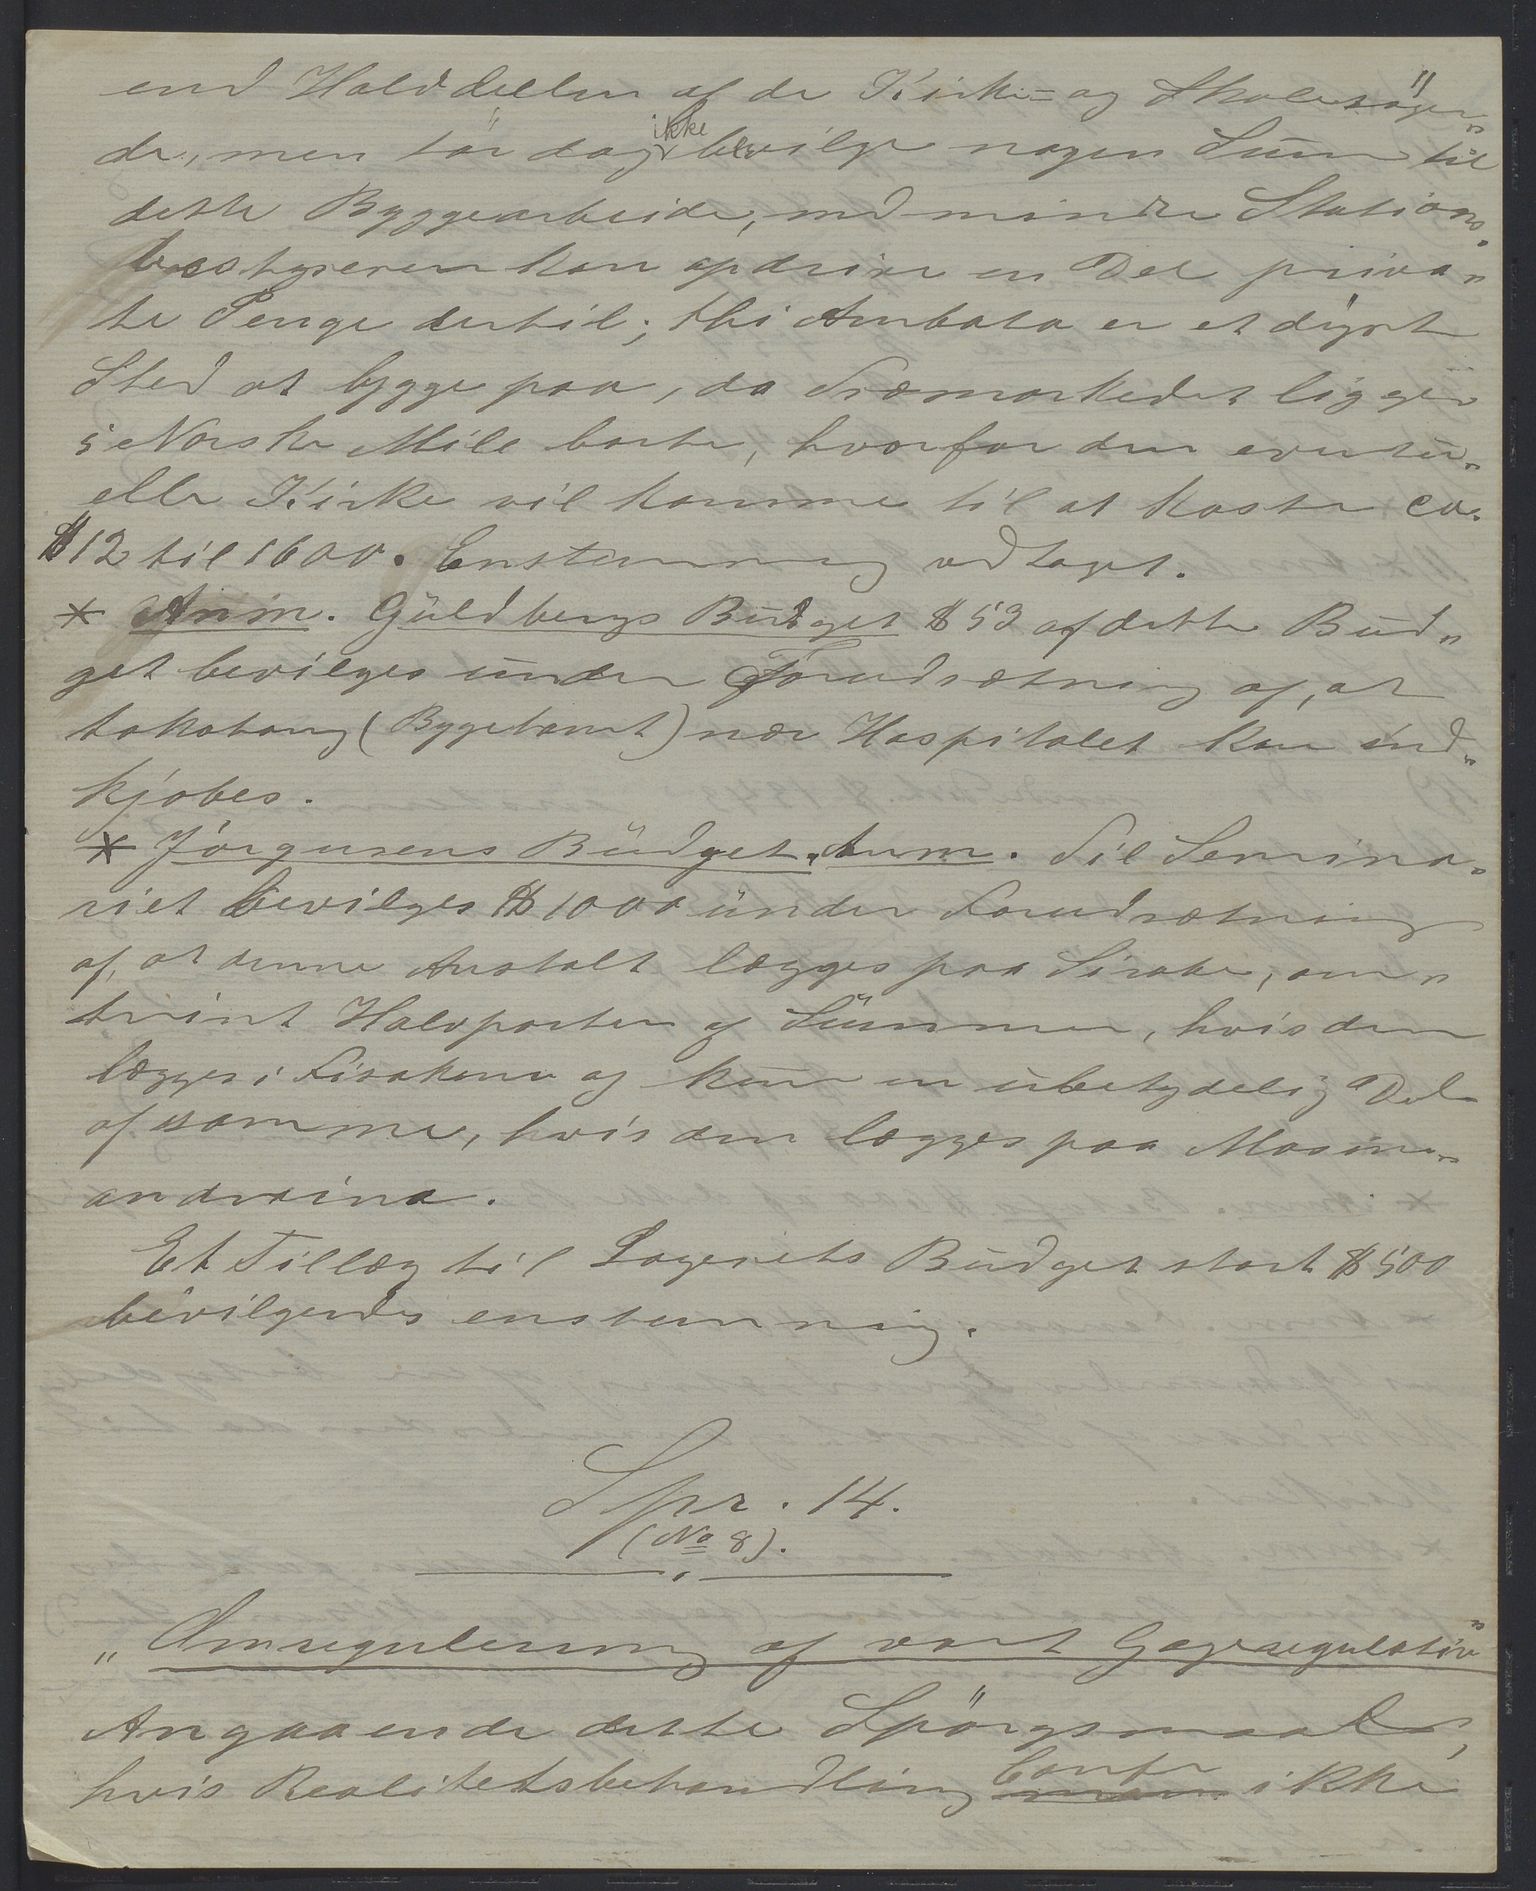 end Halvdelen af de Kirke- og Skolesögen„
de, men tör dog ikke bevilge nogen Sum til
dette Byggearbeide, med mindre Stations„
bestyreren kan opdrive en Del priva„
te Penge dertil; thi Ambato er et dyrt
Sted at bygge paa, da Træmarkedet ligger
5 Norske Mile borte, hvorfor den eventu„
elle Kirke vil komme til at koste ca.
$ 12 til 1600. Enstemmig vedtaget.
* Anm. Guldbergs Budget $ 53 af dette Bud„
get bevilges under Forudsætning af, at
takotany (Byggetomt) nær Hospitalet kan ind„
kjøbes.
* Jörgensens Budget. Anm. Til Semina„
riet bevilges $ 1000 under Forudsætning
af, at denne Anstalt lægges paa Sirabe, om„
trint Halvparten af Summen, hvis den
lægges i Fisakana og kun en ubetydelig Del
af samme, hvis den lægges paa Masin„
andraina.
Et Tillæg til Lageriets Budget stort $ 500
bevilgedes enstemmig.
Spr. 14.
(No 8).
„Omregulering af vort Gageregulativ"
Angaaende dette Spörgsmaal,
hvis Realitetsbehandling Confr ikke